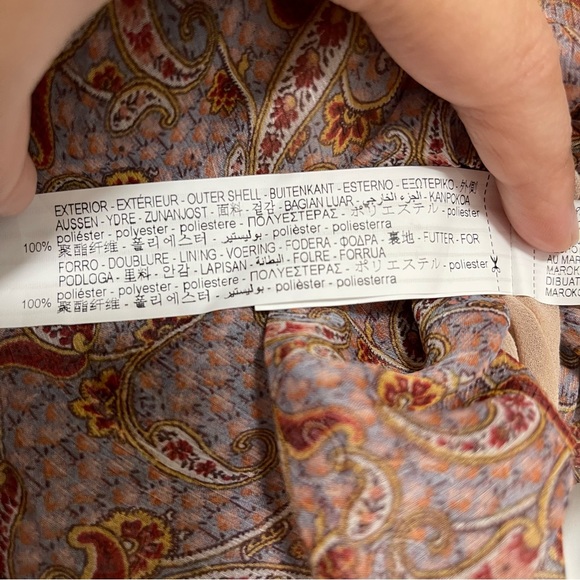 EXTERIOR - EXTÉRIEUR - OUTER SHELL - BUITENKANT - ESTERNO - ΕΞΩΤΕΡΙΚΟ - 外側
AUSSEN - YDRE - ZUNANJOST - 面料 - 겉감 - BAGIAN LUAR - الجزء الخارجي - KANPOKOA
100% poliéster - polyester - poliestere - ΠΟΛΥΕΣΤΕΡΑΣ - ポリエステル - poliester
聚酯纤维 - 폴리에스터 - بوليستير - polièster - poliesterra
FORRO - DOUBLURE - LINING - VOERING - FODERA - ΦΟΔΡΑ - 裏地 - FUTTER - FOR
PODLOGA - 里料 - 안감 - LAPISAN - البطانة - FOLRE - FORRUA
100% poliéster - polyester - poliestere - ΠΟΛΥΕΣΤΕΡΑΣ - ポリエステル - poliester
聚酯纤维 - 폴리에스터 - بوليستير - polièster - poliesterra
AU MAR
MAROK
DIBUAT
MAROKO